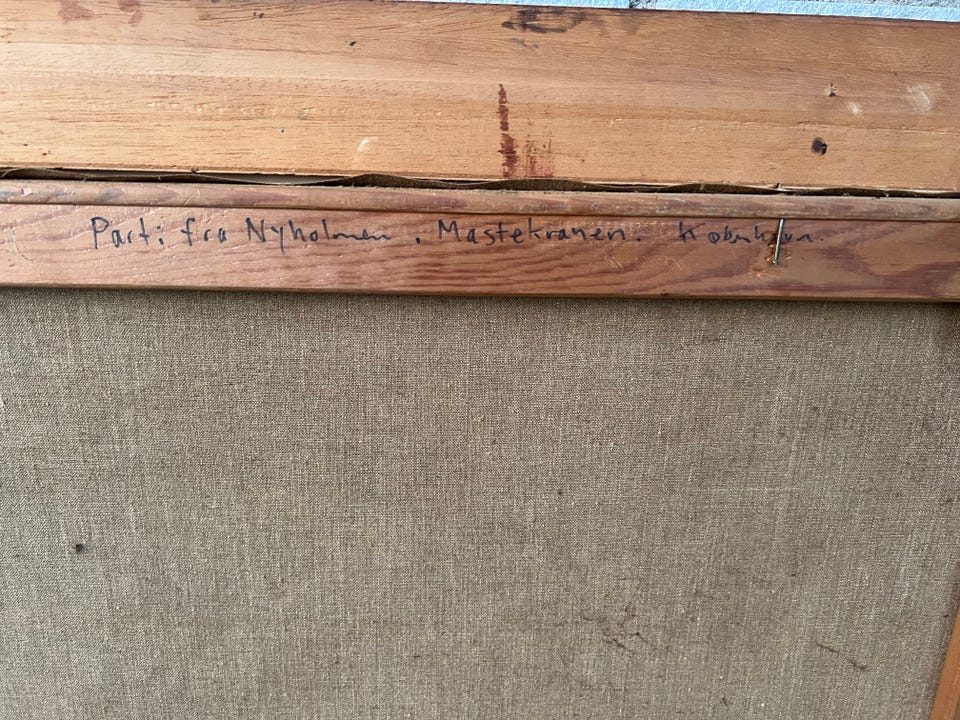 Parti fra Nyholmen. Mastekranen. København.